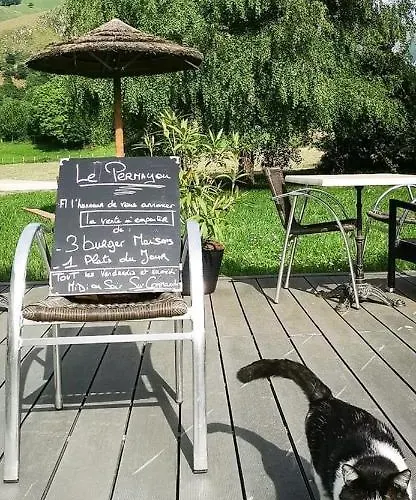 Le Pernayou
A l'honneur de vous annoncer
la vente à emporter
de :
- 3 burger Maisons
- 1 Plat du Jour
Tout les Vendredis et Samedi
Midi ou Soir Sur Commande